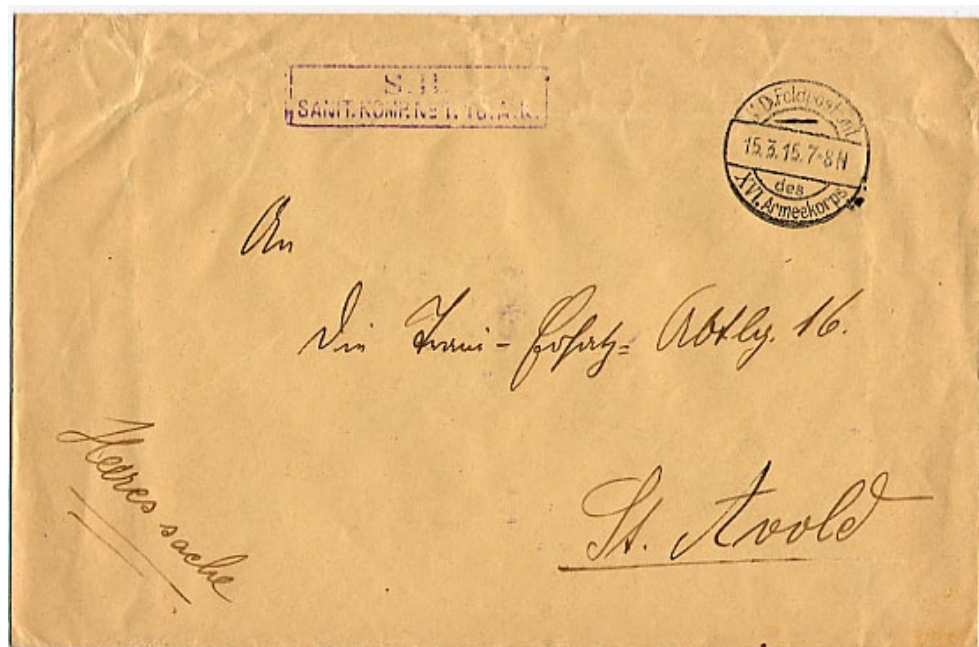 S. B.
SANIT. KOMP. No 1. 16. A. K.
K. D. Feldpostamt
15.3.15. 7-8 N
des
XVI. Armeekorps
An
die Train-Ersatz-Abtlg. 16.
Heeressache
St. Avold